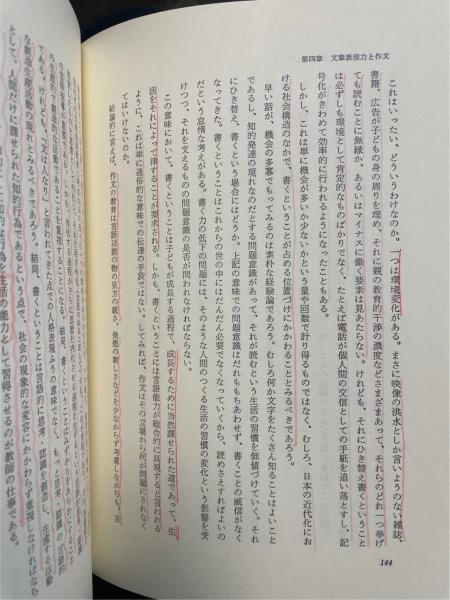 第四章　文章表現力と作文
144
これはいったい、どういうわけなのか。一つは環境変化がある。まさに映像の洪水としか言いようのない雑誌、
書籍、広告が子どもの身の周りを埋め、それに親の教育的干渉の濃度などさまざまあって、それらのどれ一つ挙げ
ても読むことに無縁か、あるいはマイナスに働く要素は見あたらない。けれども、それにひき替え書くということ
は必ずしも環境として肯定的なものばかりでなく、たとえば電話が個人間の交信としての手紙を追い落とすし、記
号化がきわめて効率的に行われるようになったこともある。
しかし、これは単に機会が多いか少ないかという量や回数で計り得るものではなく、むしろ、日本の近代化にお
ける社会構造のなかで、書くということが占める位置づけにかかわることとみるべきであろう。
早い話が、機会の多寡でもってみるのは素朴な経験論であろう。むしろ何か文字をたくさん知ることはよいこと
であるし、知的発達の現れなのだとする問題意識があって、それが読むという生活の習慣を価値づけていく。それ
にひき替え、書くという場合にはどうか。上記の意味での問題意識はだれももちあわせず、書くことの威信がなく
なってきた。書くということはこれからの世の中にはだんだん必要でなくなっていくから、読めさえすればよいの
だという怠惰な考えがある。書く力の低下の問題には、そのような人間のつくる生活の習慣の変化という影響を受
けつつ、それを支えるものの問題意識の是否が問われなければならない。
この意味において、書くということは子どもが成長する過程で、成長するために当然課せられた道であって、生
活をそれによって律することが要求される。しかも、書くということには言語能力が総合的に具現すると言われる
ように、これは単に通俗的な意味での伝達の手段ではない。してみれば、作文はその立場から何が問題にされなく
てはいけないのか。
結論的に言えば、作文の教育は言語以前の物の見方の鋭さ、発想の新しさなどを少なからず考慮しながらも、言
である。けれども、「文は人なり」と言われてきた点での人格表現ふうの意味でなく、もっと思考、認識の言語的
な創造生産活動の現れとみるべきであろう。結局、書くということは言語的に思考、認識を創造し、生産する活動
として、人間だけに課せられた知的行為であるという点で、社会の現象的な変容にかかわらず重視しなければなら
知的な行為を生活の能力として習得させるのが教師の仕事である。